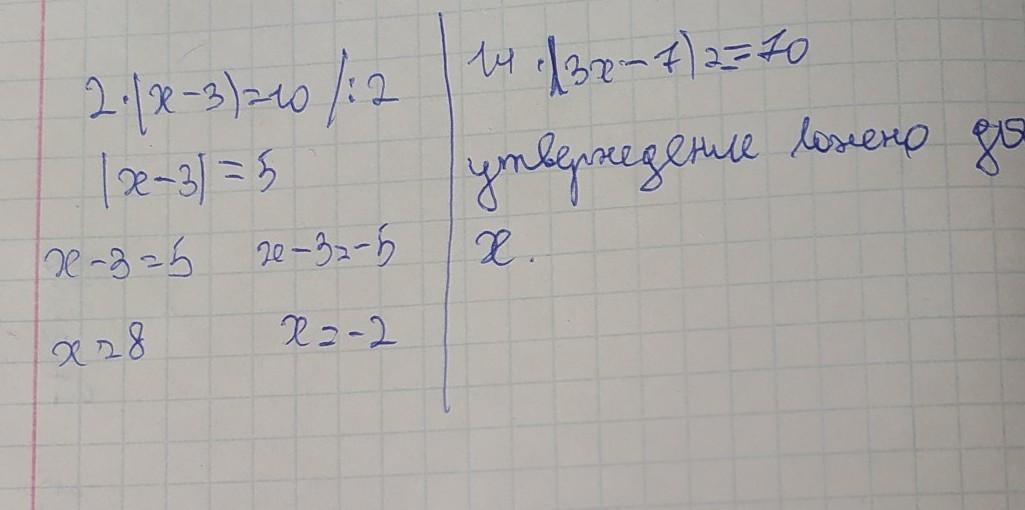 2·|x-3|=10 /:2
|x-3|=5
x-3=5 x-3=-5
x=8 x=-2
14·|3x-7|==70
утверждение ложено для
x.